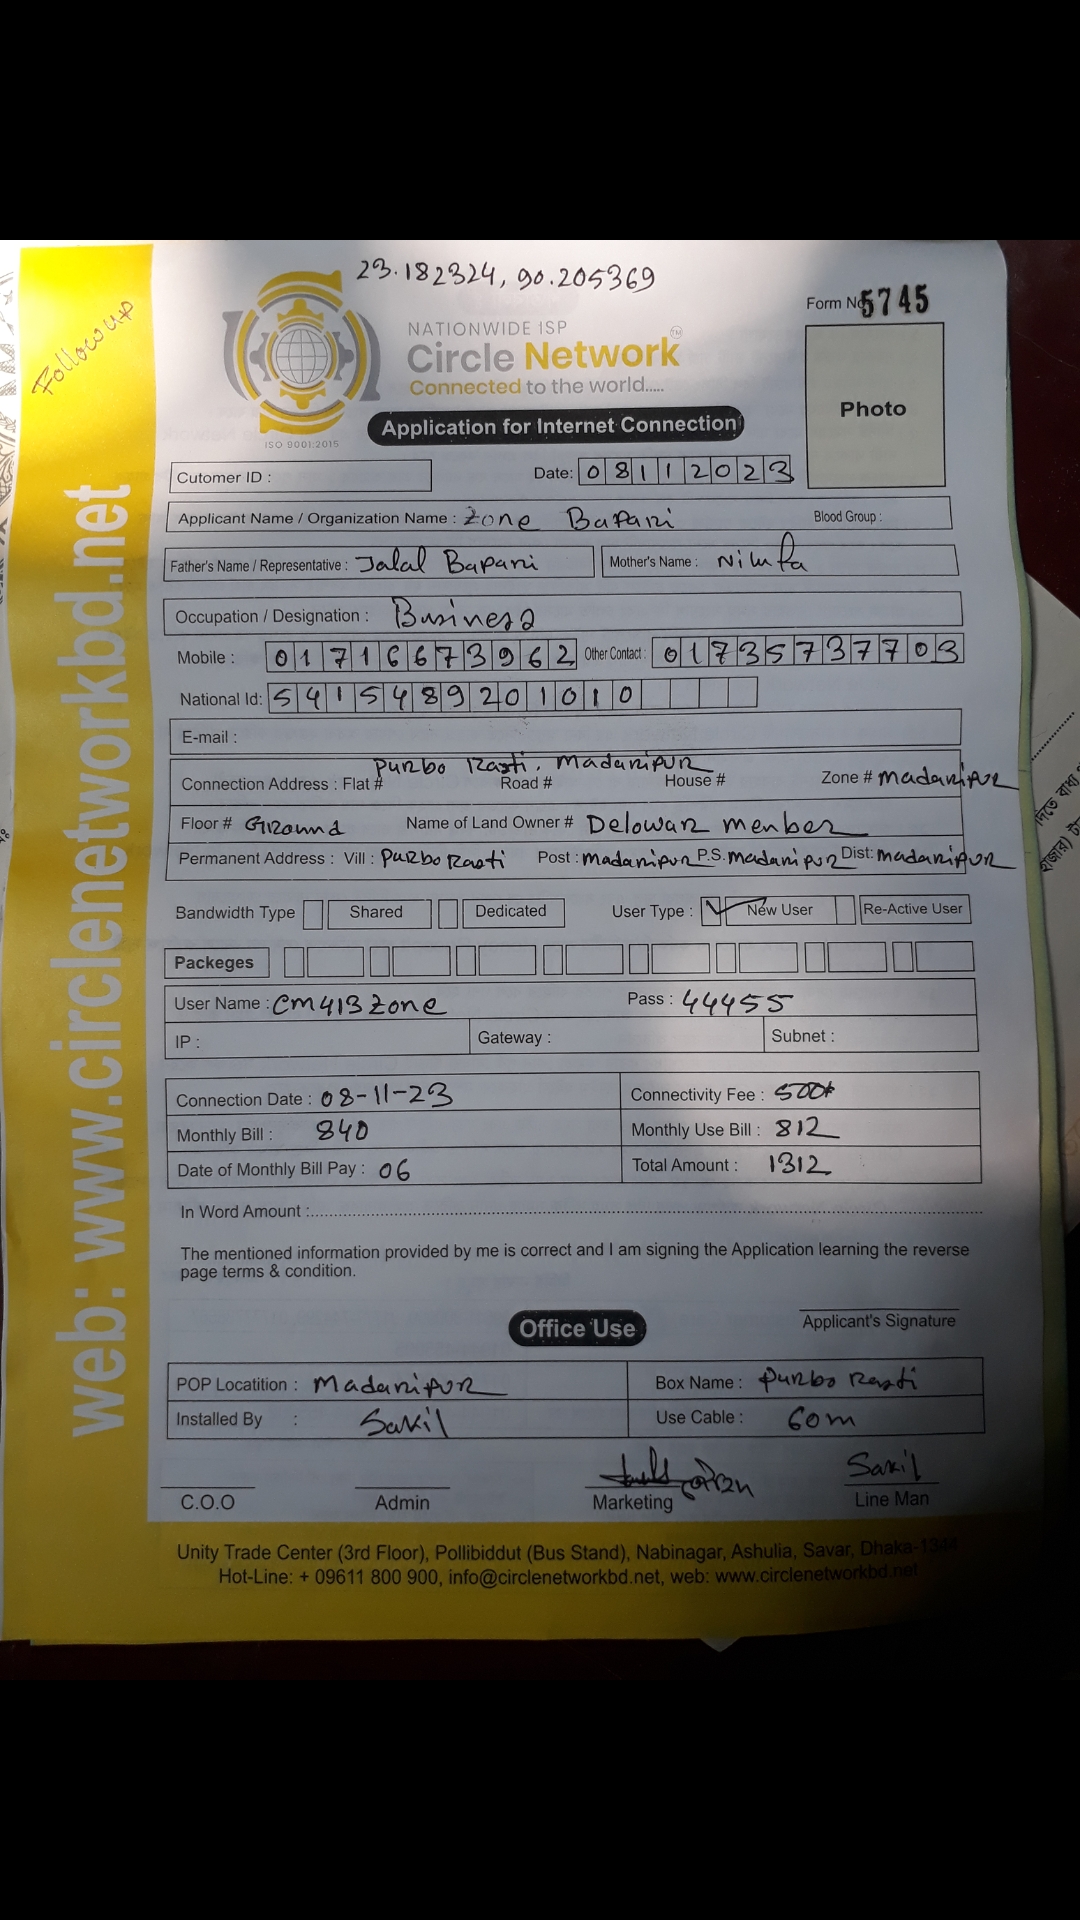 23.182324, 90.205369
Form No 5745
Follow up
NATIONWIDE ISP
Circle Network TM
Connected to the world.....
ISO 9001:2015
Application for Internet Connection
Photo
Cutomer ID :
Date: 08112023
Applicant Name / Organization Name : Zone Bapari Blood Group :
Father's Name / Representative : Jalal Bapari Mother's Name : Nilufa
Occupation / Designation : Business
Mobile : 01716673962 Other Contact : 01735737703
National Id: 5415489201010
E-mail :
Purbo Rasti, Madaripur
Connection Address : Flat # Road # House # Zone # Madaripur
Floor # Ground Name of Land Owner # Delowar menber
Permanent Address : Vill : Purbo Rasti Post : Madaripur P.S. madaripur Dist: madaripur
Bandwidth Type Shared Dedicated User Type : ✓ New User Re-Active User
Packeges
User Name : cm413zone Pass : 44455
IP : Gateway : Subnet :
Connection Date : 08-11-23 Connectivity Fee : 500
Monthly Bill : 840 Monthly Use Bill : 812
Date of Monthly Bill Pay : 06 Total Amount : 1312
In Word Amount :
The mentioned information provided by me is correct and I am signing the Application learning the reverse
page terms & condition.
Applicant's Signature
Office Use
POP Locatition : Madaripur Box Name : Purbo Rasti
Installed By : Sakil Use Cable : 60m
Sakil
C.O.O Admin Marketing Line Man
Unity Trade Center (3rd Floor), Pollibiddut (Bus Stand), Nabinagar, Ashulia, Savar, Dhaka-1344
Hot-Line: + 09611 800 900, info@circlenetworkbd.net, web: www.circlenetworkbd.net
web: www.circlenetworkbd.net